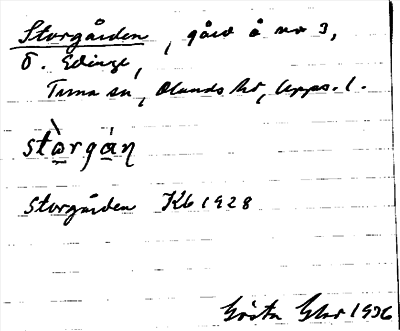 Storgården, gård å no 3,
Ö. Edinge,
Tuna sn, Olands hd, Upps. l.
stòrgán
Storgården Kb 1928
Gösta 1936